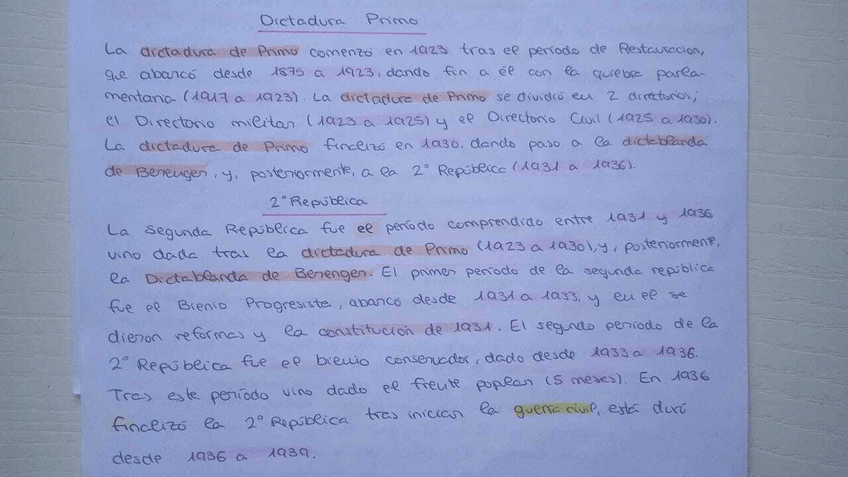 Dictadura Primo
La dictadura de Primo comenzó en 1923 tras el período de Restauración,
que abarcó desde 1875 a 1923, dando fin a él con la quiebra parla-
mentaria (1917 a 1923). La dictadura de Primo se dividió en 2 directorios;
el Directorio militar (1923 a 1925) y el Directorio Civil (1925 a 1930).
La dictadura de Primo finalizó en 1930, dando paso a la dictablanda
de Berenguer, y, posteriormente, a la 2º República (1931 a 1936).
2º República
La Segunda República fue el período comprendido entre 1931 y 1936
vino dada tras la dictadura de Primo (1923 a 1930), y, posteriormente,
la Dictablanda de Berenger. El primer periodo de la segunda república
fue el Bienio Progresista, abarcó desde 1931 a 1933, y en el se
dieron reformas y la constitución de 1931. El segundo período de la
2º República fue el bienio conservador, dado desde 1933 a 1936.
Tras este período vino dado el frente popular (5 meses). En 1936
finalizó la 2º República tras iniciar la guerra civil, está duró
desde 1936 a 1939.